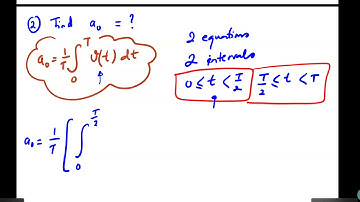 ② Find a₀ = ?
a₀ = 1/T ∫₀ᵀ v(t) dt
2 equations
2 intervals
0 ≤ t < T/2
T/2 ≤ t < T
a₀ = 1/T [ ∫₀^(T/2)